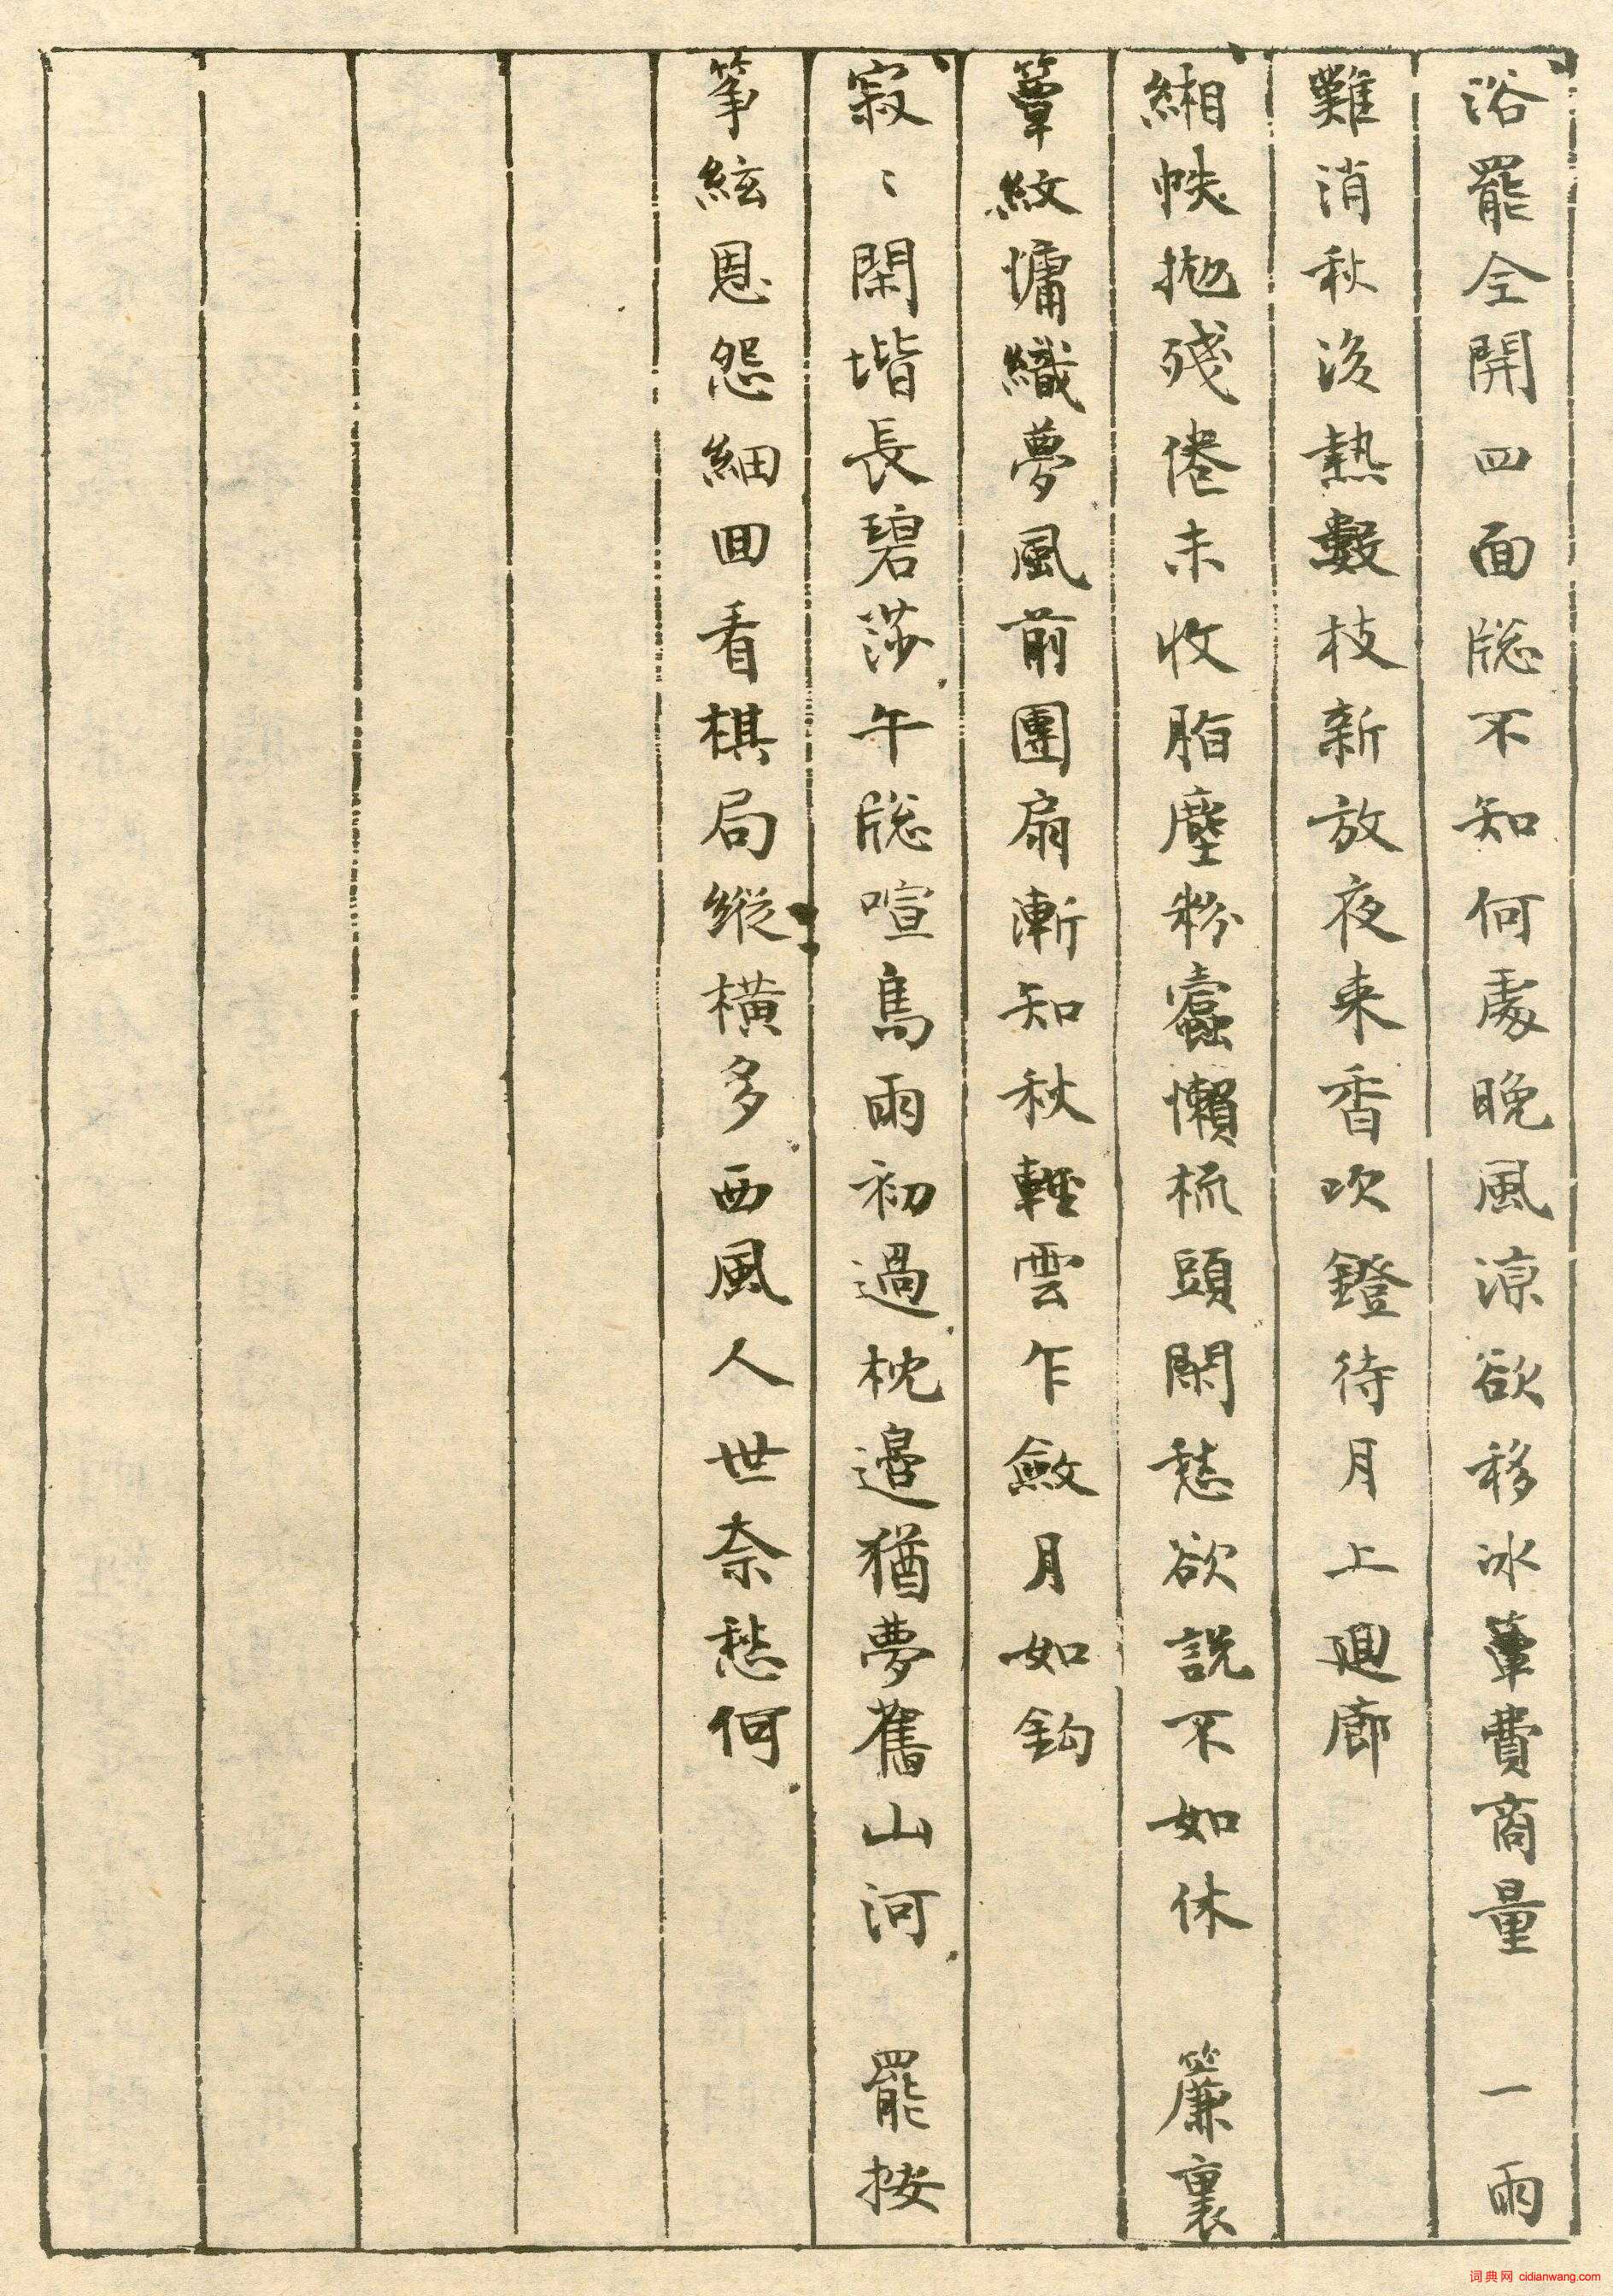 浴罷全開四面牕不知何處晚風涼欲移冰簟費商量　一雨
難消秋後熱數枝新放夜來香吹鐙待月上迴廊
緗帙拋殘倦未收脂塵粉蠹懶梳頭閑愁欲說不如休　簾裏
簟紋慵織夢風前團扇漸知秋輕雲乍斂月如鈎
寂〻閑堦長碧莎午牕喧鳥雨初過枕邊猶夢舊山河　罷按
筝絃恩怨細回看棋局縱橫多西風人世奈愁何
词典网 cidianwang.com